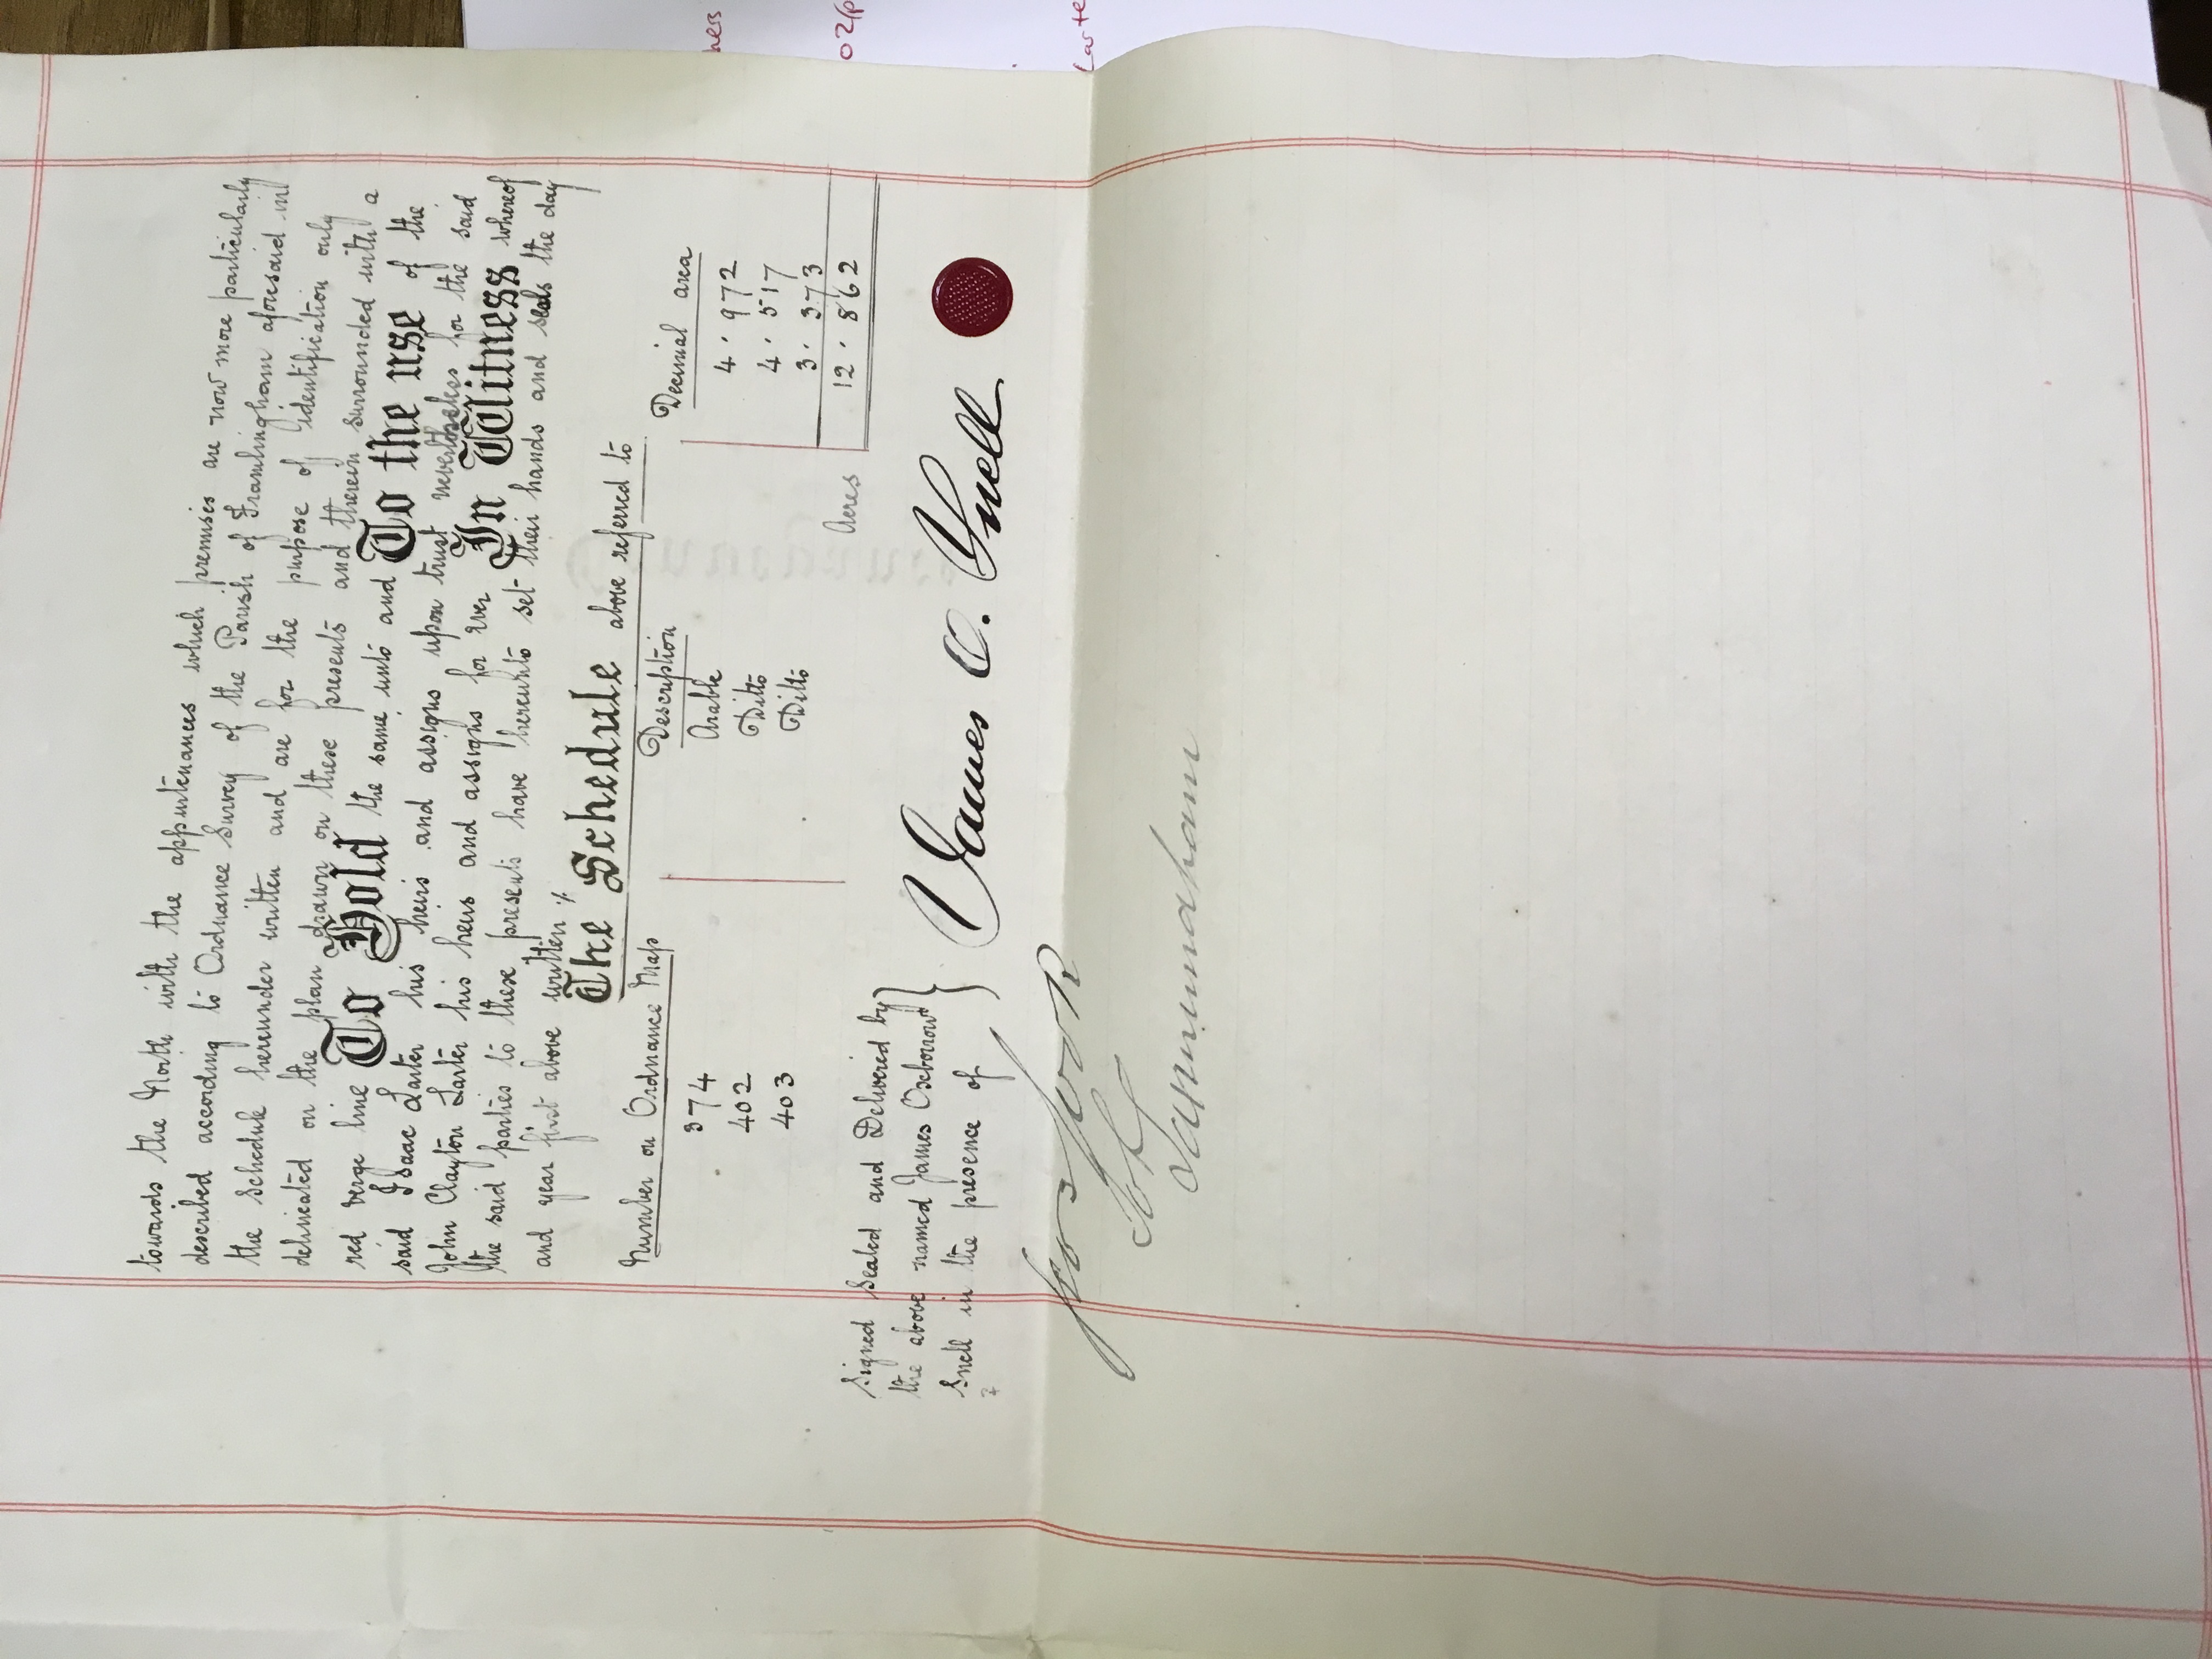 towards the North with the appurtenances which premises are now more particularly
described according to Ordnance Survey of the Parish of Framlingham aforesaid in
the schedule hereunder written and are for the purpose of identification only
delineated on the plan drawn on these presents and therein surrounded with a
red verge line To Hold the same unto and To the use of the
said Isaac Larter his heirs and assigns upon trust nevertheless for the said
John Clayton Larter his heirs and assigns for ever In Witness whereof
the said parties to these presents have hereunto set their hands and seals the day
and year first above written
The Schedule above referred to
Number on Ordnance Map Description Decimal area
374 Arable 4 . 972
402 Ditto 4 . 517
403 Ditto 3 . 373
Acres 12 . 862
Signed Sealed and Delivered by
the above named James Oseborrow
Snell in the presence of
James O. Snell
Clk
Saxmundham